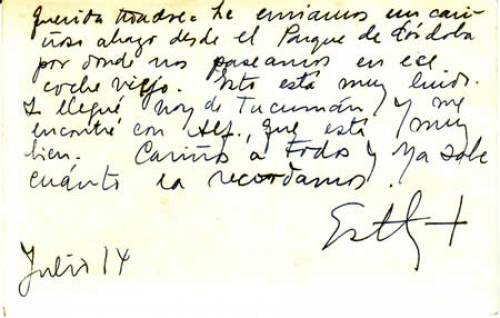 Querida madre: Le enviamos un cari
ñoso abrazo desde el Parque de Córdoba
por donde nos paseamos en ese
coche viejo. Esto está muy lindo.
Yo llegué hoy de Tucumán y me
encontré con Alf., que está muy
bien. Cariños a todos y ya sabe
cuánto la recordamos.
Julio 14